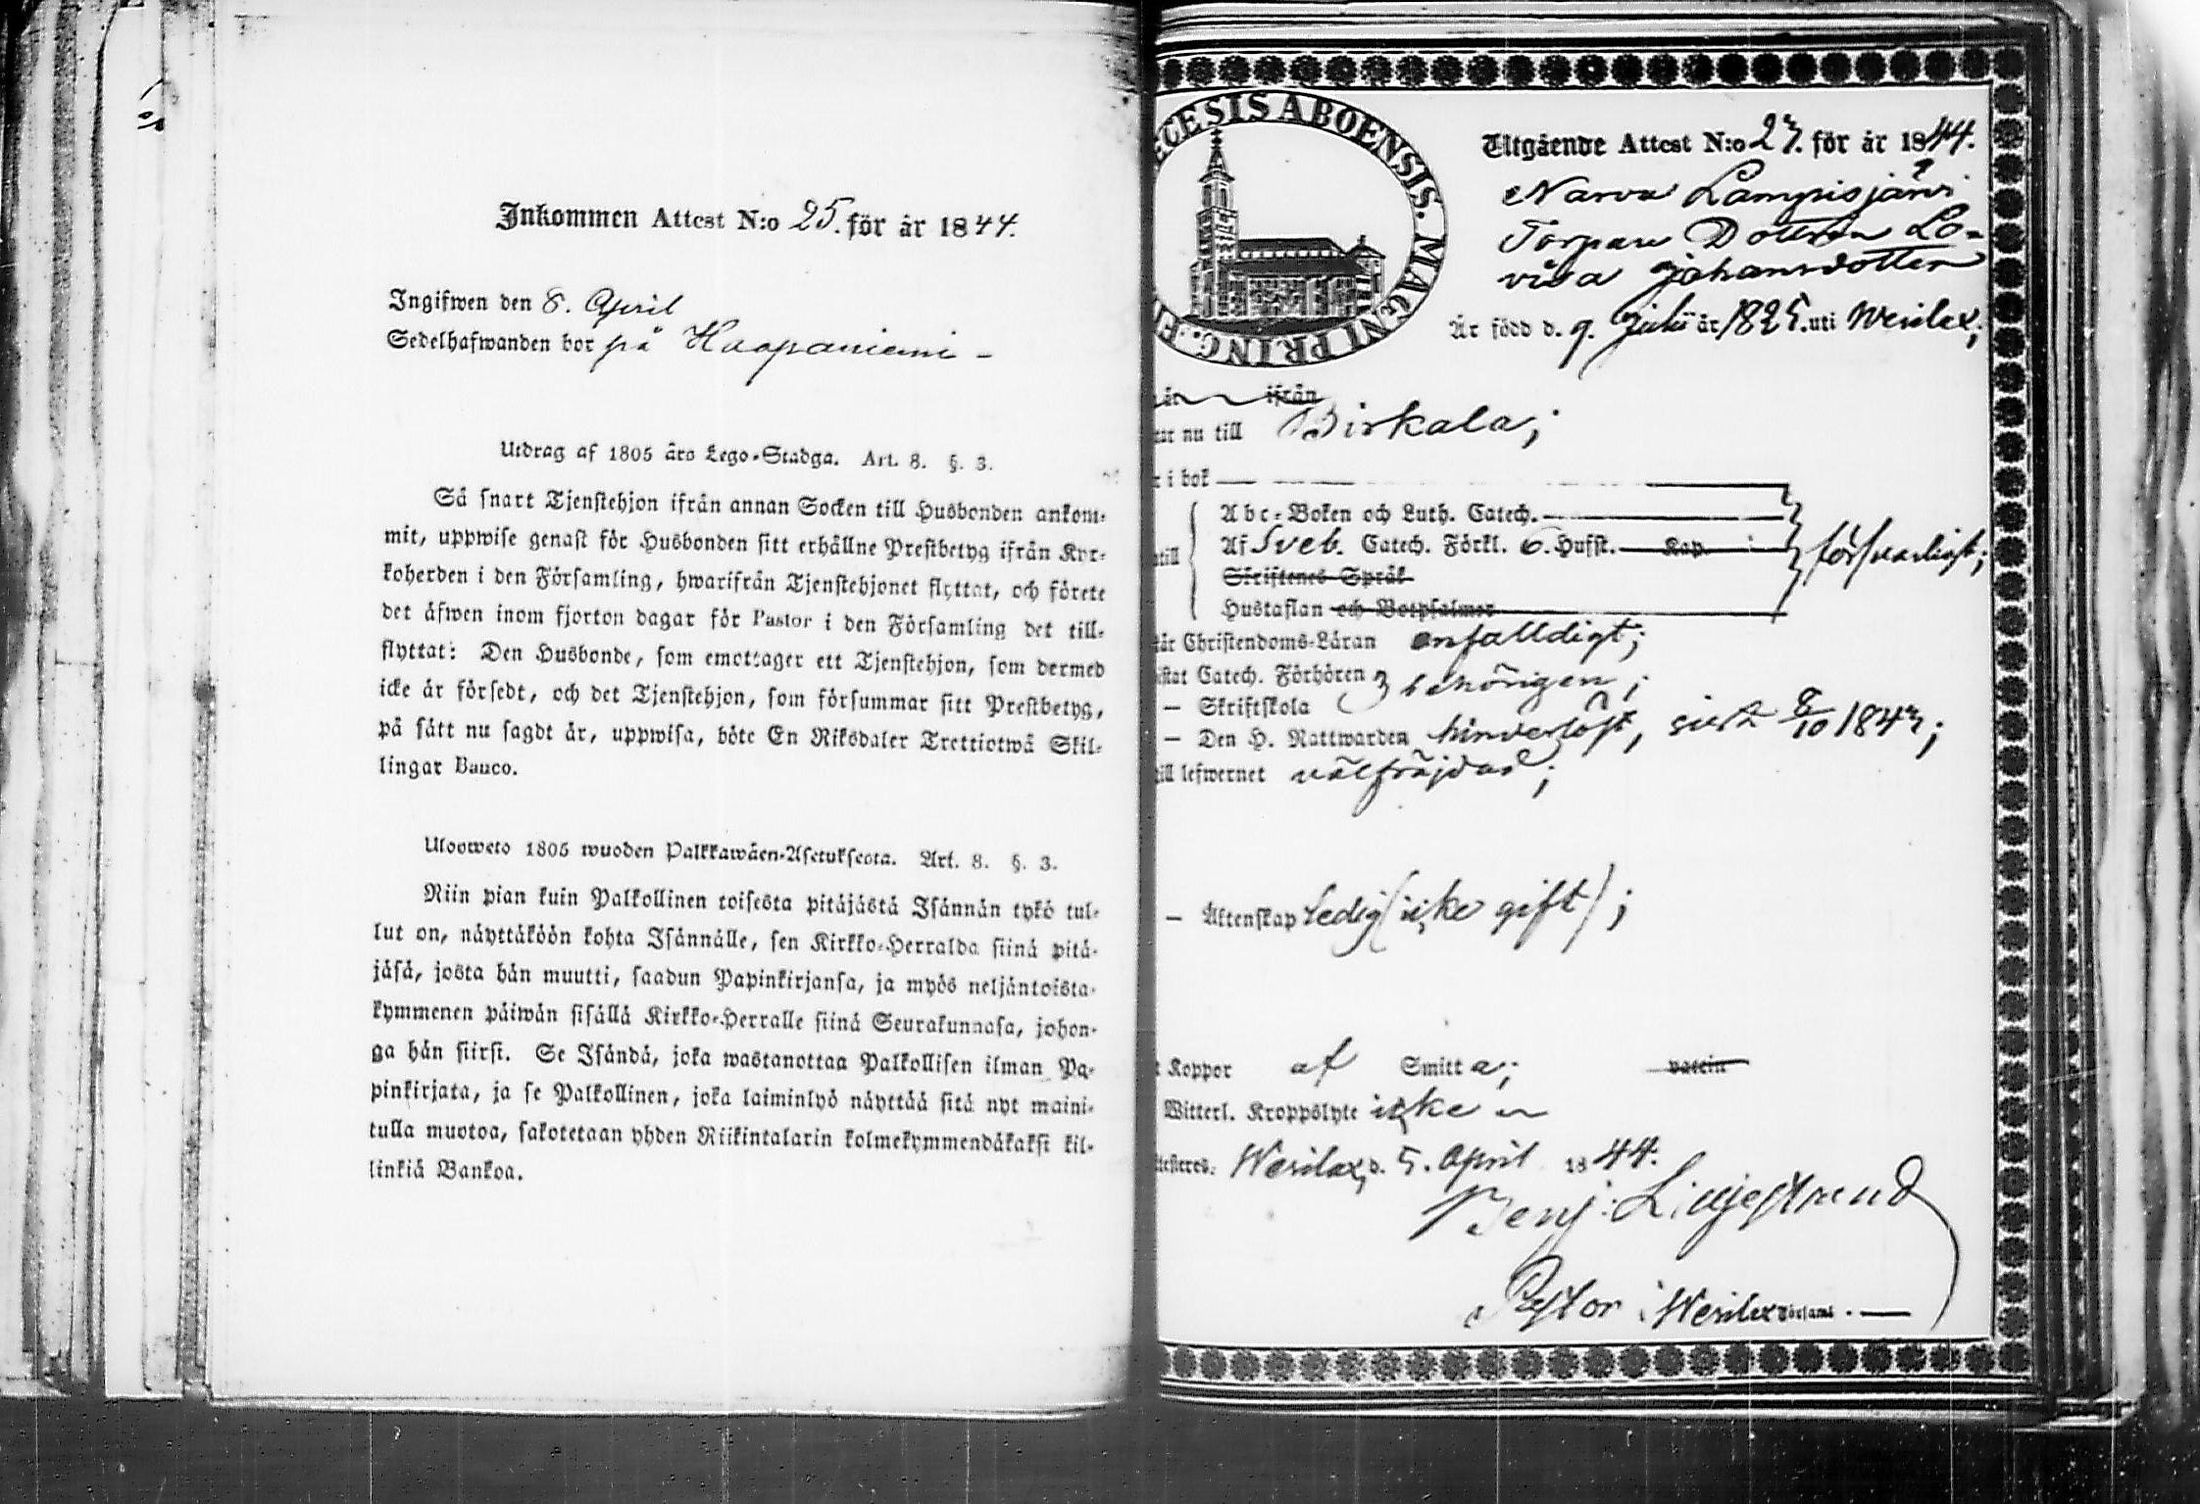 Inkommen Attest N:o 25. för år 1844.
Ingifwen den 8. April
Sedelhafwanden bor på Haapaniemi -
Utdrag af 1805 års Lego-Stadga. Art. 8. §. 3.
Så snart Tjenstehjon ifrån annan Socken till Husbonden ankom-
mit, uppwise genast för Husbonden sitt erhållne Prestbetyg ifrån Kyr-
koherden i den Församling, hwarifrån Tjenstehjonet flyttat, och förete
det äfwen inom fjorton dagar för Pastor i den Församling det till-
flyttat: Den Husbonde, som emottager ett Tjenstehjon, som dermed
icke är försedt, och det Tjenstehjon, som försummar sitt Prestbetyg,
på sätt nu sagdt är, uppwisa, böte En Riksdaler Trettiotwå Skil-
lingar Banco.
Ulosweto 1805 wuoden Palkkawäen-Asetuksesta. Art. 8. §. 3.
Niin pian kuin Palkollinen toisesta pitäjästä Isännän tykö tul-
lut on, näyttäköön kohta Isännälle, sen Kirkko-Herralda siinä pitä-
jäsä, josta hän muutti, saadun Papinkirjansa, ja myös neljäntoista-
kymmenen päiwän sisällä Kirkko-Herralle siinä Seurakunnasa, johon-
ga hän siirsi. Se Isändä, joka wastanottaa Palkollisen ilman Pa-
pinkirjata, ja se Palkollinen, joka laiminlyö näyttää sitä nyt maini-
tulla muotoa, sakotetaan yhden Riikintalarin kolmekymmendäkaksi kil-
linkiä Bankoa.
ECESIS ABOENSIS. MAGNI PRINC. F
Utgående Attest N:o 23. för år 1844.
Narva Lampisjärvi
Torpare Dottren Lo-
visa Johansdotter
Är född d. 9. Julii år 1825. uti Wesilax;
är ifrån
nu till Birkala;
r i bok
Abc-Boken och Luth. Catech.
till Af Sveb. Catech. Förkl. 6. Hufst. Kap. försvarligt;
Skriftenes Språk
Hustaflan och Botpsalmer
tår Christendoms-Läran enfalldigt;
istat Catech. Förhören
- Skriftskola behörigen;
- Den H. Nattwarden hinderlöst, sist 8/10 1843;
till lefwernet välfräjdad;
- Äktenskap Ledig (icke gift);
t Koppor af Smitta; vaccin
Witterl. Kroppslyte icke
ttesteres. Wesilax, d. 5. April 1844.
Benj: Liljestrand
Pastor i Wesilax Församl.